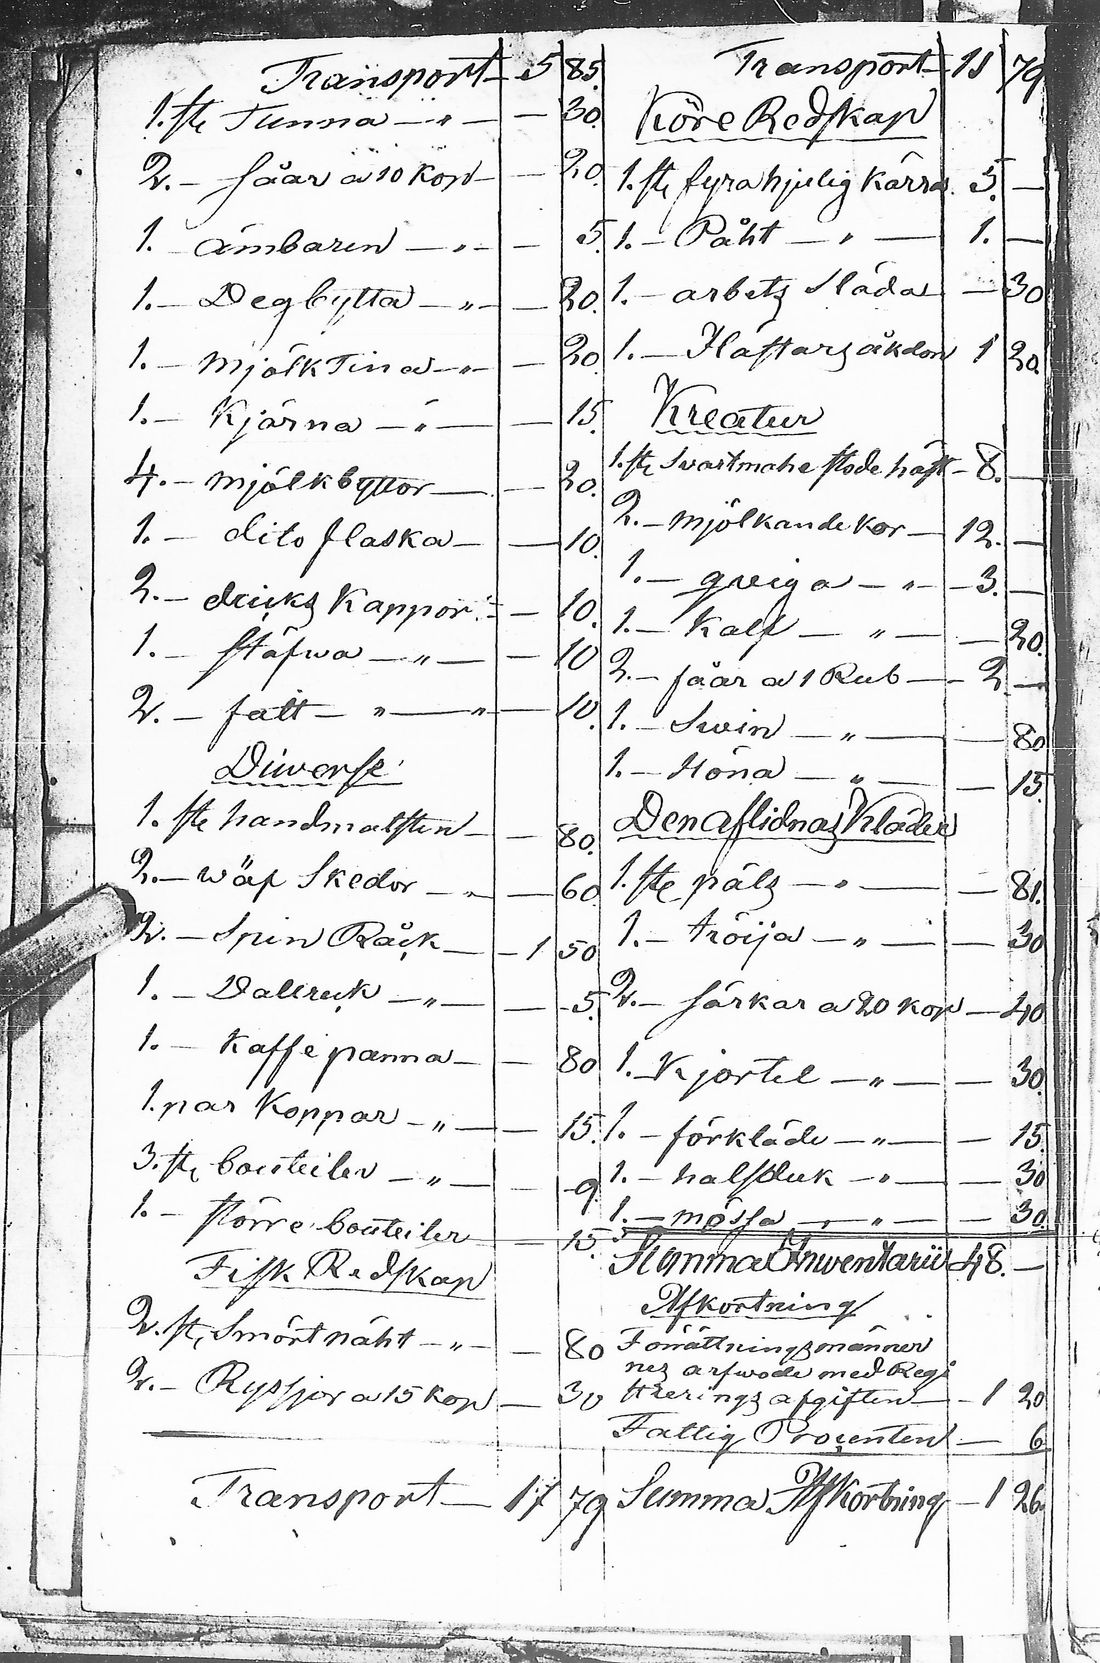 Transport — 5 85.
1. st. Tunna — „ — — 30.
2. — såar a 10 kop — — 20.
1. — ämbaren — „ — — 5.
1. — Degbytta — „ — — 20.
1. — mjölk Tina — „ — — 20.
1. — Kjärna — „ — — 15.
4. — mjölkbyttor — — 20.
1. — dito flaska — — 10.
2. — dricks Kappor — — 10.
1. — stäfwa — „ — — 10
2. — fatt — „ — „ — 10.
Diwerse
1. st handmalsten — — 80.
2. — wäf Skedor — „ — 60
2. — Spin Råck — 1 50
1. — Vallruk — „ — — 5.
1. — Kaffe panna — — 80
1. par Koppar — „ — — 15.
3. st, bouteiler — „ — — 9.
1. — större bouteiler — 15.
Fisk Redskap
2. st, Smört näht — „ — — 80
2. — Ryssjor a 15 kop — 30
Transport — 17 79
Transport — 11 79
Köre Redskap
1. st fyrahjulig kärra 5. —
1. — Påht — „ — 1. —
1. — arbets Släda — 30
1. — Hästars åkdon 1 20.
Kreatur
1. st, Swartmahe stode häst — 8. —
2. — mjölkande kor — 12. —
1. — qweiga — „ — 3. —
1. — Kalf — „ — — 20.
2. — fåar a 1 Rub — — 2 —
1. — Swin — „ — — 80
1. — Höna — „ — — 15.
Den Aflidnas Kläder
1. st pälz — „ — — 81.
1. — tröija — „ — — 30
2. — särkar a 20 kop — 40
1. Kjortel — „ — — 30.
1. — förkläde — „ — — 15.
1. — halsduk — „ — — 30
1. — mössa — „ — — 30.
Summa Inwentarii 48. —
Afkortning
Förrättningsmänner
nes arfwode med Regi
streringsafgiften — 1 20
Fattig Procenten — 6
Summa Afkortning — 1 26.